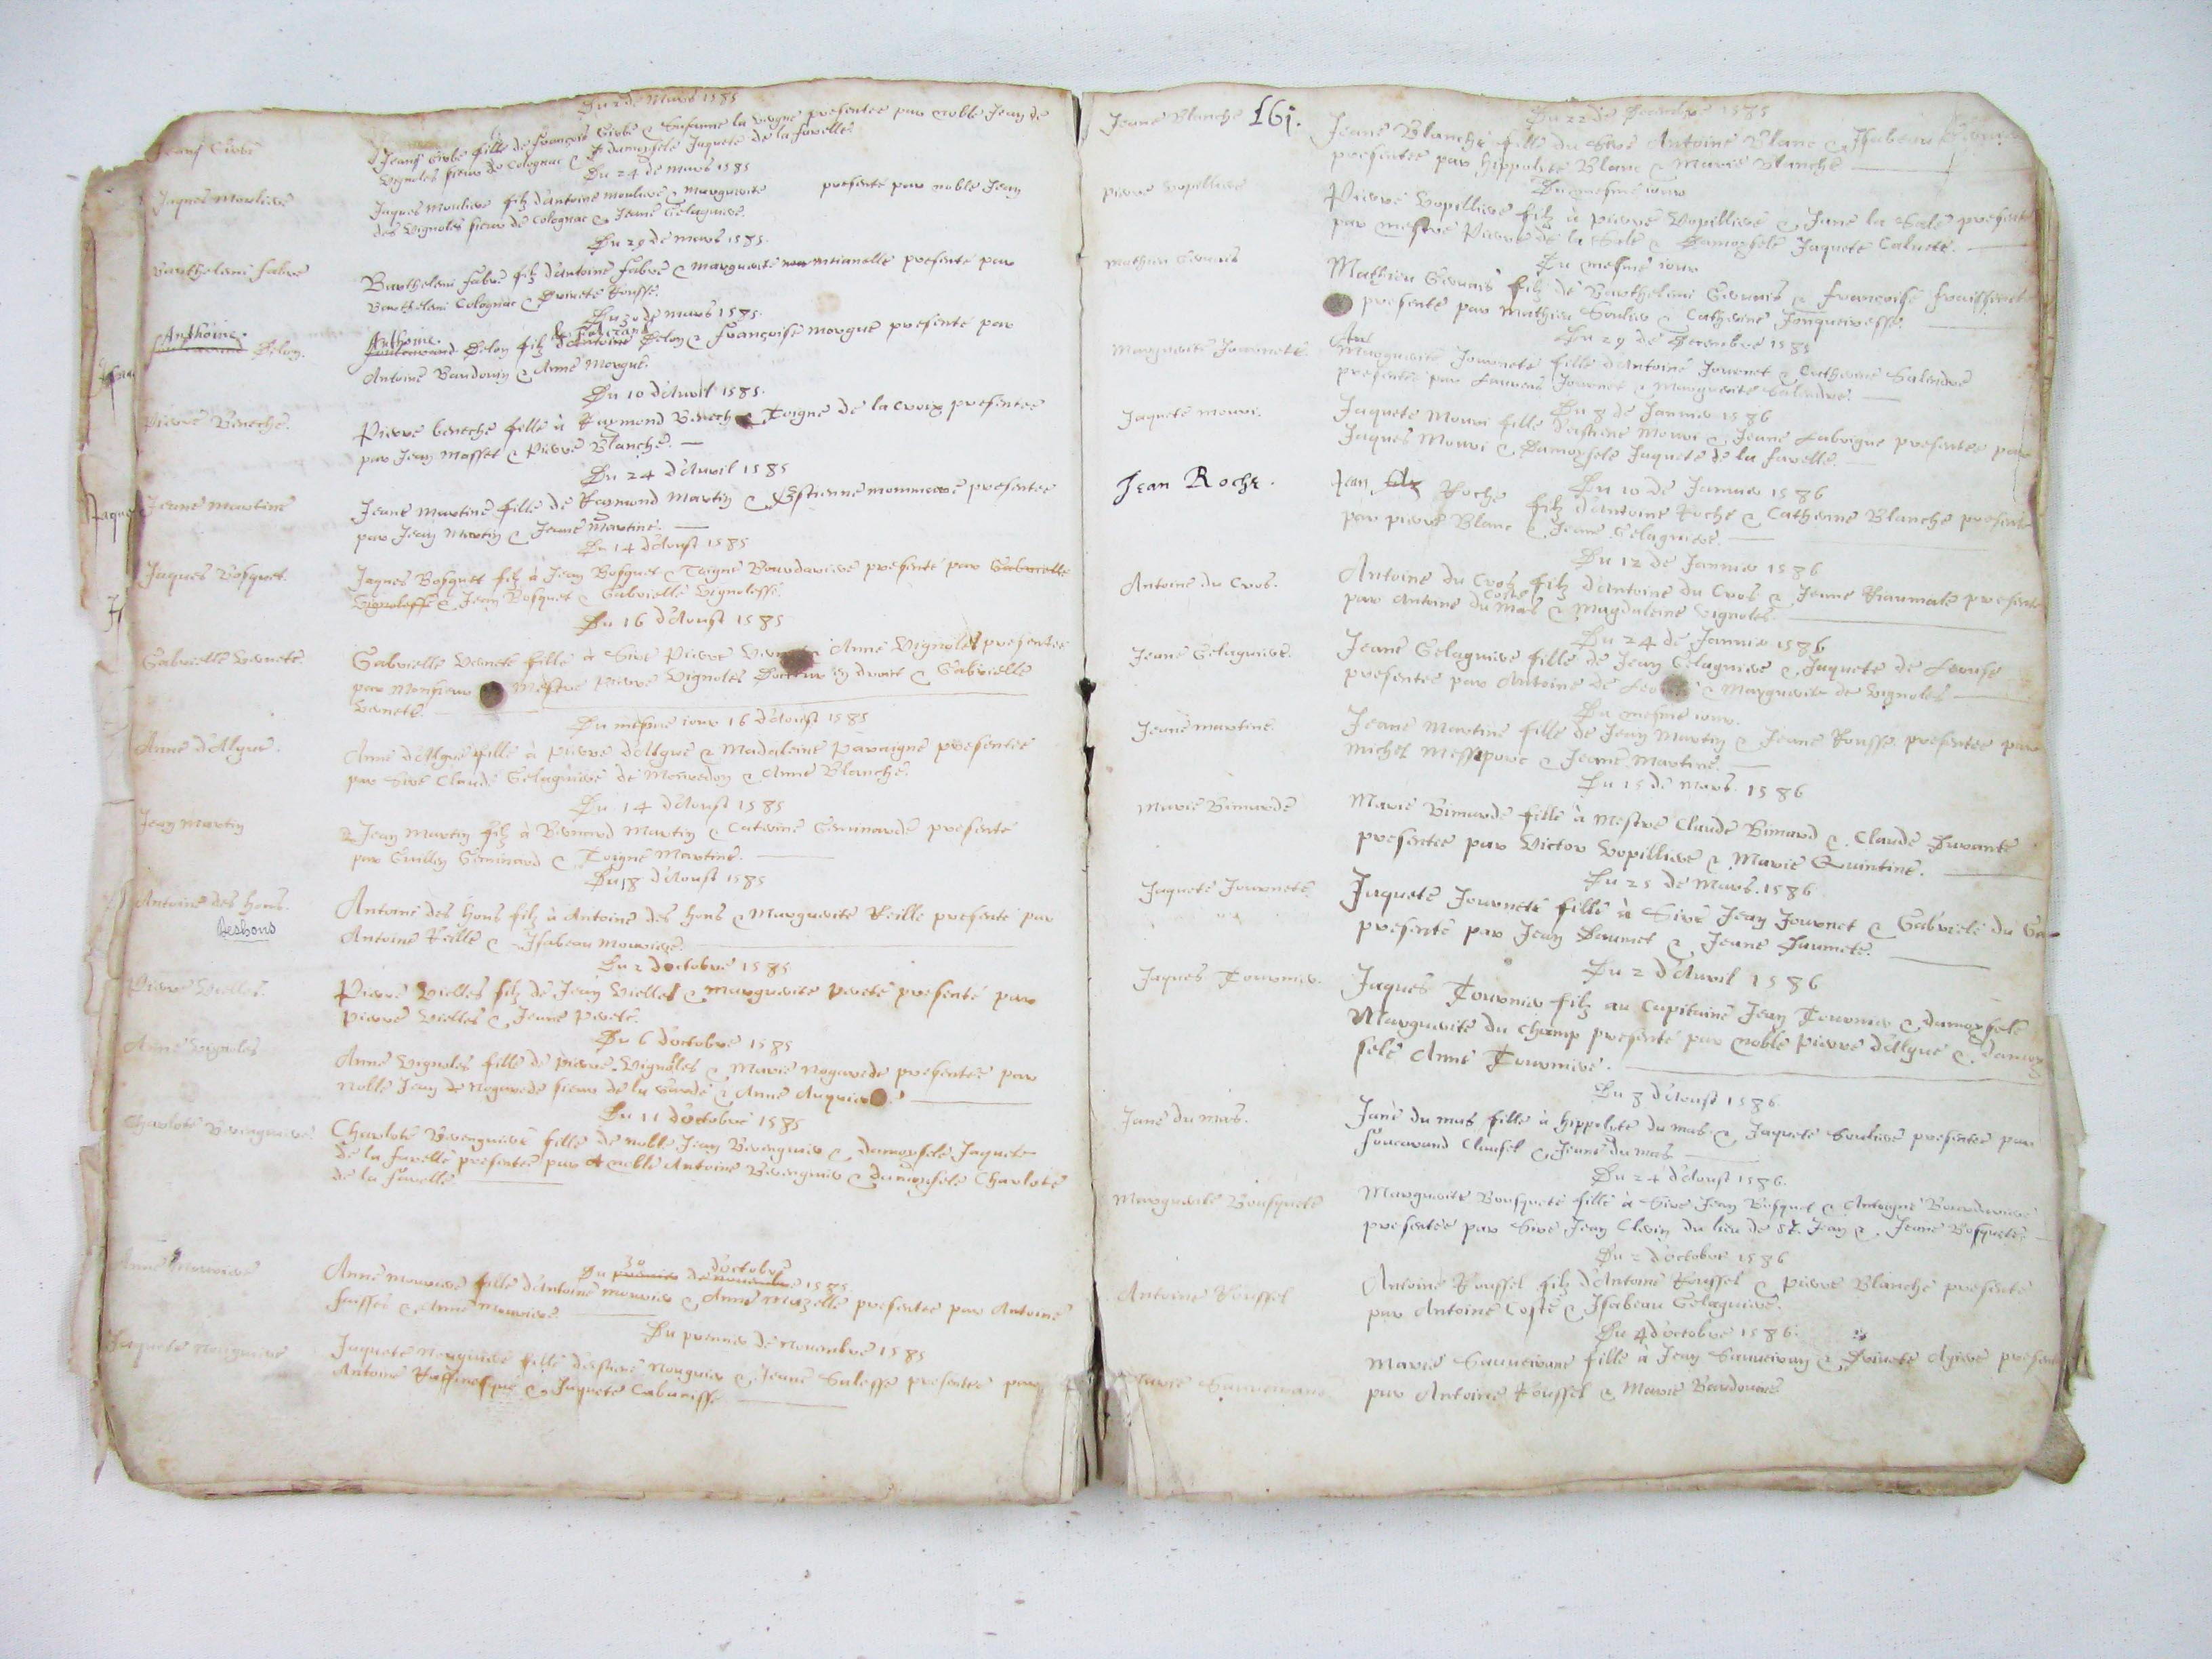 Du 2 de Mars 1585
Jeane Girbe
Jeane Girbe fille de françois Girbe & Susanne la vergne presentee par noble Jean de
Vignoles sieur de Colognac & damoysele Jaquete de la farelle
Du 24 de mars 1585
Jaques Mouliere
Jaques Mouliere filz d'antoine mouliere & marguerite presenté par noble Jean
des Vignoles sieur de Colognac & Jeane Gelaguiere.
Du 29 de mars 1585.
Barthelemi fabre
Barthelemi fabre filz d'Antoine fabre & marguerite presenté par
Barthelemi Colognac & Privete Rousse.
Du 30 de mars 1585.
Anthoine Delon.
Anthoine Delon filz de Delon & françoise morgue presenté par
Antoine Baudouin & Anne Morgue.
Du 10 d'Auril 1585.
Pierre Beneche.
Pierre beneche fille à Raymond Benech & Toigne de la Croix presentee
par Jean Masset & Pierre Blanche.
Du 24 d'Auril 1585
Jeane Martine
Jeane Martine fille de Raymond Martin & Estienne presentee
par Jean Martin & Jeane Martine.
Du 14 d'Aoust 1585
Jaques Bosquet.
Jaques Bosquet filz à Jean Bosquet & Toigne Bourdariere presenté par Gabrielle
Vignolesse & Jean Bosquet & Gabrielle Vignolesse.
Du 16 d'Aoust 1585
Gabrielle Vernete.
Gabrielle Vernete fille à Sire Pierre Anne Vignoles presentee
par Monsieur Mestre Pierre Vignoles Docteur en droict & Gabrielle
Vernete.
Du mesme iour 16 d'Aoust 1585
Anne d'Algue.
Anne d'Algue fille à Pierre d'Algue & Madaleine Paraigne presentee
par Sire Claude Gelaguiere de Monredon & Anne Blanche.
Du 14 d'Aoust 1585
Jean Martin
Jean Martin filz à Bernard Martin & Caterine Geminarde presenté
par Guillen Geminard & Toigne Martine.
Du 18 d'Aoust 1585
Antoine des hons.
Deshons
Antoine des hons filz à Antoine des hons & Marguerite Reille presenté par
Antoine Reille & Isabeau Mouriere.
Du 2 d'octobre 1585
Pierre Vielles.
Pierre Vielles filz de Jean Vielles & Marguerite Perete presenté par
Pierre Vielles & Jeane Perete.
Du 6 d'octobre 1585
Anne Vignoles
Anne Vignoles fille de Pierre Vignoles & Marie Nogarede presentee par
Noble Jean de Nogarede sieur de la Garde & Anne
Du 11 d'octobre 1585
Charlote Berenguiere.
Charlote Berenguiere fille de noble Jean Berenguier & damoysele Jaquete
de la farelle presentee par noble Antoine Berenguier & damoysele Charlote
de la farelle
Du 30 premier d'octobre de nouembre 1585.
Anne Mouriere
Anne mouriere fille d'Antoine mourier & Anne Mazelle presentee par Antoine
& Anne Mouriere.
Du premier de Nouembre 1585
Jaquete Nouguiere
Jaquete Nouguiere fille d'estiene Nouguier & Jeane Salesse presentee par
Antoine & Jaquete Cabanisse
161.
Du 22 de Decembre 1585
Jeane Blanche
Jeane Blanche fille du Sire Antoine Blanc & Isabeau
presentee par hippolite Blanc & Marie Blanche
Du mesme iour
Pierre Vopilliere
Pierre Vopilliere filz à pierre Vopilliere & Jane la Sale presenté
par mestre Pierre de la Sale & Damoysele Jaquete Caluete.
Du mesme iour
Mathieu Geruais
Mathieu Geruais filz de Barthelemi Geruais & françoise
presenté par Mathieu Soulier & Catherine Jonqueiresse.
Du 29 de Decembre 1585
Marguerite Journete.
Marguerite Journete fille d'Antoine Journet & Catherine Salendre
presentee par Laurens Journet & Marguerite Salendre.
Du 8 de Januier 1586
Jaquete mouri.
Jaquete Mouri fille d'estiene Mouri & Jeane Labrigue presentee par
Jaques Mouri & Damoysele Jaquete de la farelle.
Du 10 de Januier 1586
Jean Roche.
Jean Roche filz d'Antoine Roche & Catherine Blanche presenté
par pierre Blanc & Jeane Gelaguiere.
Du 12 de Januier 1586
Antoine du Cros.
Antoine du Cros filz d'Antoine du Cros & Jeane presenté
par Antoine Coste du Mas & Magdaleine Vignoles.
Du 24 de Januier 1586
Jeane Gelaguiere.
Jeane Gelaguiere fille de Jean Gelaguiere & Jaquete de Leouse
presentee par Antoine de & Marguerite de Vignoles
Du mesme iour.
Jeane martine.
Jeane Martine fille de Jean Martin & Jeane Rousse presentee par
Michel & Jeane Martine.
Du 15 de mars. 1586
Marie Bimarde
Marie Bimarde fille à Mestre Claude Bimard & Claude Durante
presentee par Victor Vopilliere & Marie Quintine.
Du 25 de Mars. 1586
Jaquete Journete.
Jaquete Journete fille à Sire Jean Journet & Gabriele du
presenté par Jean Daumet & Jeane Daumete.
Du 2 d'Auril 1586
Jaques Tournier.
Jaques Tournier filz au Capitaine Jean Tournier & damoysele
Marguerite du champ presenté par noble Pierre d'Algue & damoy
sele Anne Tourniere.
Du 8 d'Aoust 1586
Jane du mas.
Jane du mas fille à hippolite du mas & Jaquete Souliere presentee par
foucarand Clausel & Jeane du mas
Du 24 d'Aoust 1586.
Marguerite Bousquete
Marguerite Bousquete fille à Sire Jean Bosquet & Antoigne Bourdariere
presentee par Sire Jean du lieu de St. Jean & Jeane Bosquete.
Du 2 d'octobre 1586
Antoine Roussel
Antoine Roussel filz d'Antoine Roussel & Pierre Blanche presenté
par Antoine Coste & Isabeau Gelaguiere.
Du 4 d'octobre 1586.
Marie Sauueirane
Marie Sauueirane fille à Jean Sauueiran & Privete presentee
par Antoine Roussel & Marie Baudouine.